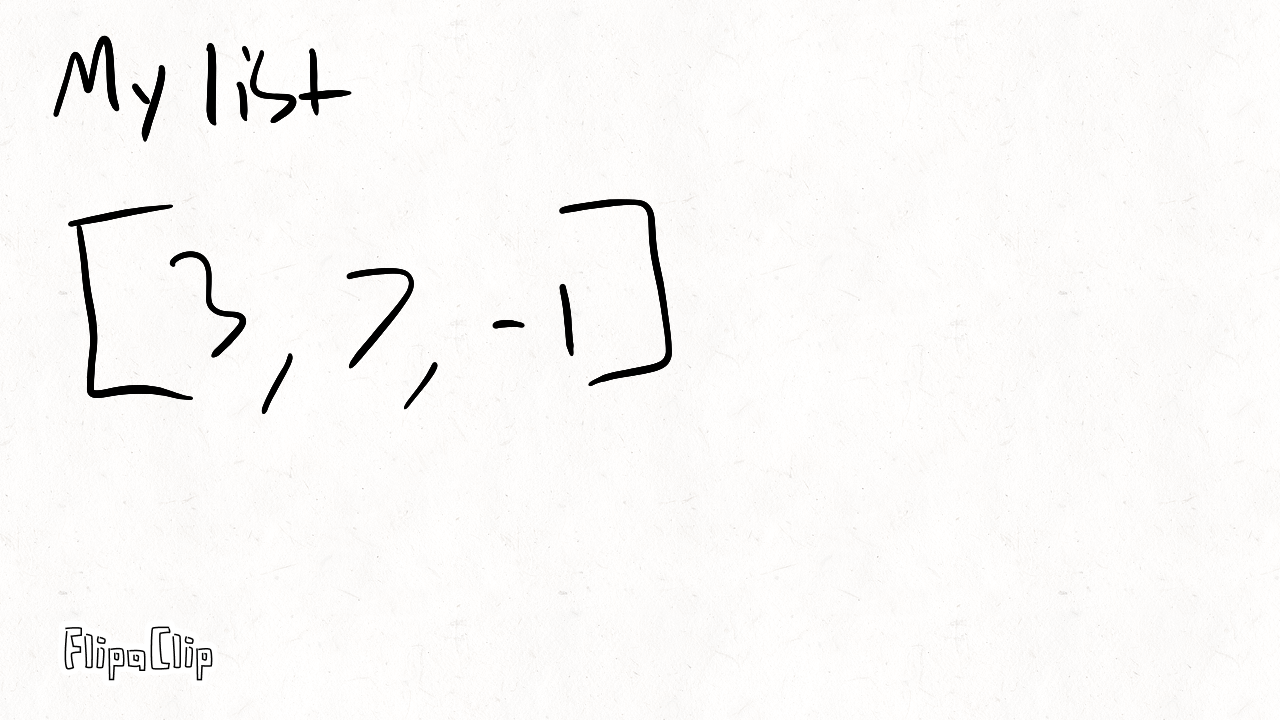 My list
[3, 7, -1]
FlipaClip